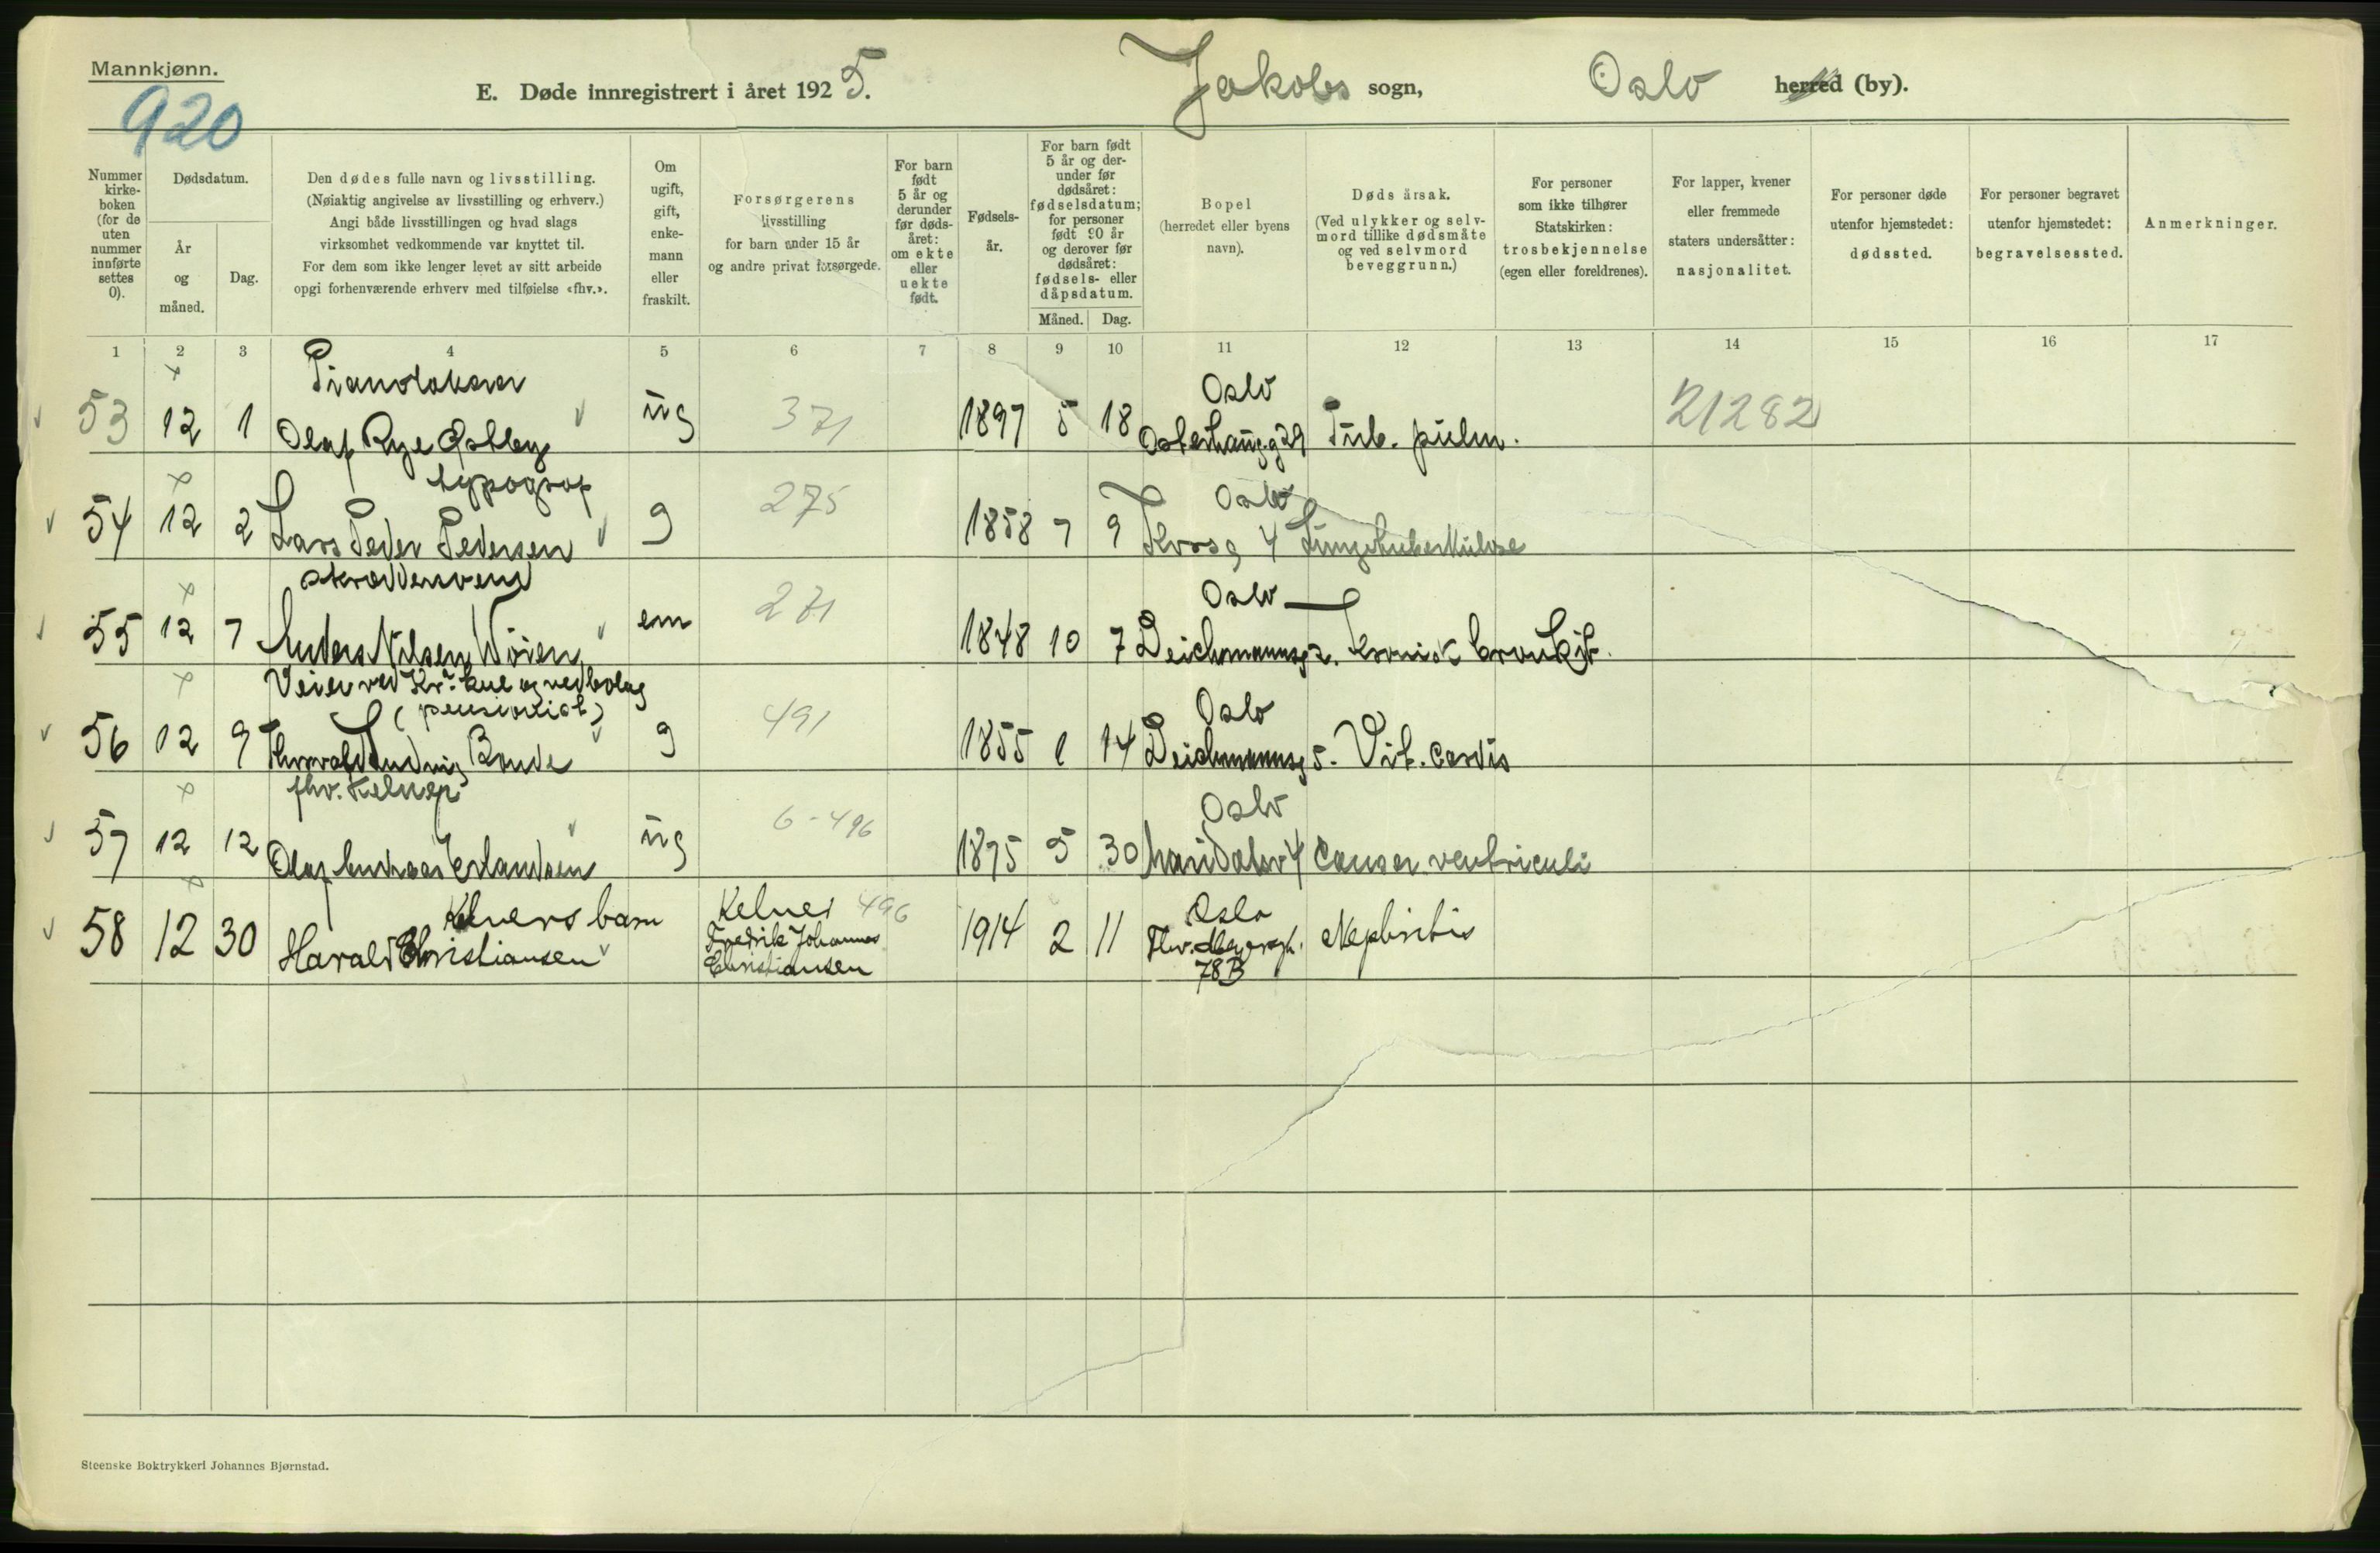 Mannkjønn.
920
E. Døde innregistrert i året 1925. Jakobs sogn, Oslo herred (by).
Nummer kirke-boken (for de uten nummer innførte settes 0).
Dødsdatum.
År og måned.
Dag.
Den dødes fulle navn og livsstilling.
(Nøiaktig angivelse av livsstilling og erhverv.)
Angi både livsstillingen og hvad slags
virksomhet vedkommende var knyttet til.
For dem som ikke lenger levet av sitt arbeide
opgi forhenværende erhverv med tilføielse «fhv.».
Om ugift, gift, enke-mann eller fraskilt.
Forsørgerens
livsstilling
for barn under 15 år
og andre privat forsørgede.
For barn født 5 år og derunder før døds-året: om ekte eller uekte født.
Fødsels-år.
For barn født 5 år og der-under før dødsåret: fødselsdatum; for personer født 90 år og derover før dødsåret: fødsels- eller dåpsdatum.
Måned. Dag.
Bopel
(herredet eller byens navn).
Dødsårsak.
(Ved ulykker og selv-mord tillike dødsmåte og ved selvmord beveggrunn.)
For personer som ikke tilhører Statskirken: trosbekjennelse (egen eller foreldrenes).
For lapper, kvener eller fremmede staters undersåtter: nasjonalitet.
For personer døde utenfor hjemstedet: dødssted.
For personer begravet utenfor hjemstedet: begravelsessted.
Anmerkninger.
1 2 3 4 5 6 7 8 9 10 11 12 13 14 15 16 17
Oslo
53 12 1 Olaf Rye Østby ug 371 1897 5 18 Osterhausg 29 Tub. pulm. 21282
typograf Oslo
54 12 2 Lars Peder Pedersen g 275 1858 7 9 Korsg 4 Lungetuberkulose
skreddersvend Oslo
55 12 7 Anders Nilsen Wöien em 271 1848 10 7 Deichmannsg 2. Kronisk bronkit.
Veier ved Kr.a kul og vedbolag
(pensionist) Oslo
56 12 9 Thorvald Ludvig Bonde g 491 1855 1 14 Deichmannsg 5. Vit. cordis
fhv. Kelner Oslo
57 12 12 Olaf Andreas Erlandsen ug 6-496 1875 5 30 Maridalsv 4 Cancer ventriculi
Kelners barn Kelner 496 Oslo
58 12 30 Harald Christiansen Fredrik Johannes Christiansen 1914 2 11 Thv. Meyersgt. 78B Nephritis
Steenske Boktrykkeri Johannes Bjørnstad.